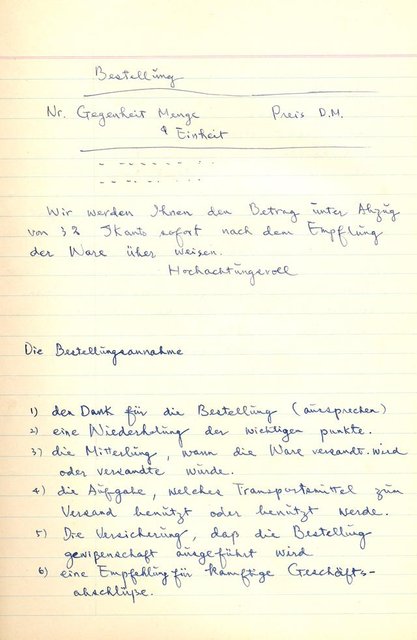 Bestellung
Nr. Gegenheit Menge Preis D.M.
& Einheit
Wir werden Ihnen den Betrag unter Abzug
von 3% Skonto sofort nach dem Empflung
der Ware über weisen.
Hochachtungsvoll
Die Bestellungsannahme
1) den Dank für die Bestellung (aussprechen)
2) eine Wiederholung der wichtigen punkte.
3) die Mitteilung, wann die Ware versandt wird
oder versandte würde.
4) die Aufgabe, welches Transportmittel zum
Versand benützt oder benützt werde.
5) Die Versicherung, daß die Bestellung
gewißenschaft ausgeführt wird
6) eine Empfehlung für kämftige Geschäfts-
abschlüße.